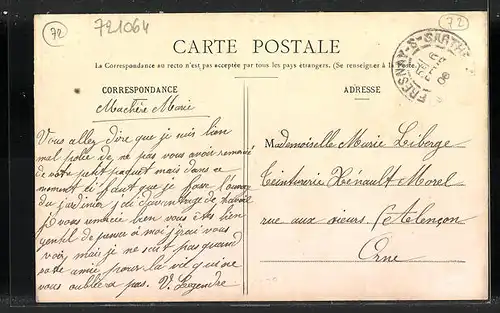 72
721064
72
CARTE POSTALE
La Correspondance au recto n'est pas acceptée par tous les pays étrangers. (Se renseigner à la Poste.)
FRESNAY-S-SARTHE
06
CORRESPONDANCE
Ma chère Marie
Vous allez dire que je suis bien
mal polie de ne pas vous avoir remercié
de votre petit paquet mais dans ce
moment il faut que je fasse l'ouvrage
du jardinier j'ai davantage de travail
je vous remercie bien vous êtes bien
gentil de penser à moi j'irai vous
voir, mais je ne sait pas quand
votre amie pour la vie qui ne
vous oubliera pas. V. Legendre
ADRESSE
Mademoiselle Marie Liberge
Teinturerie Hénault Morel
rue aux sieurs. Alençon
Orne